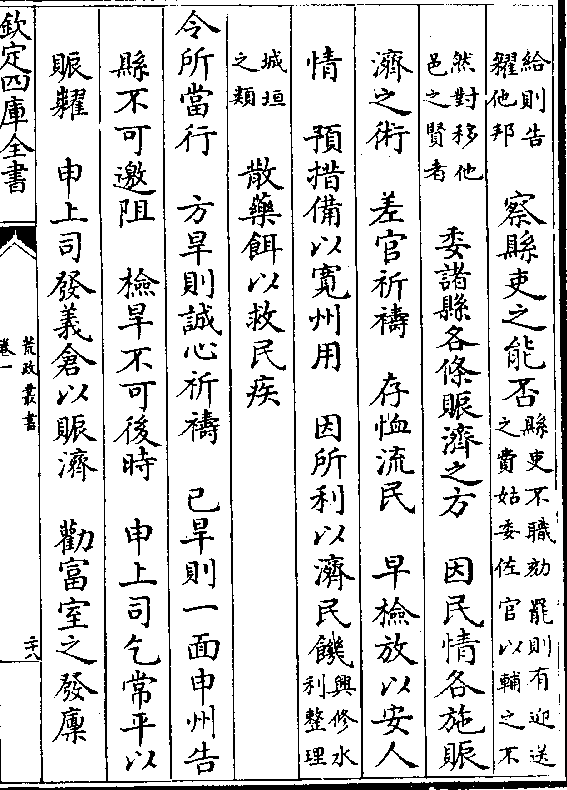 給則告糴他邦 察縣吏之能否 縣吏不職劾罷則有迎送之費姑委佐官以輔之不
然對移他邑之賢者 委諸縣各條賑濟之方 因民情各施賑
濟之術 差官祈禱 存恤流民 早檢放以安人
情 預措備以寛州用 因所利以濟民饑 興修水利整理
城垣之類 散藥餌以救民疾
令所當行 方旱則誠心祈禱 已旱則一面申州告
縣不可邀阻 檢旱不可後時 申上司乞常平以
賑糶 申上司發義倉以賑濟 勸富室之發廩
欽定四庫全書
荒政叢書
卷一
二十八